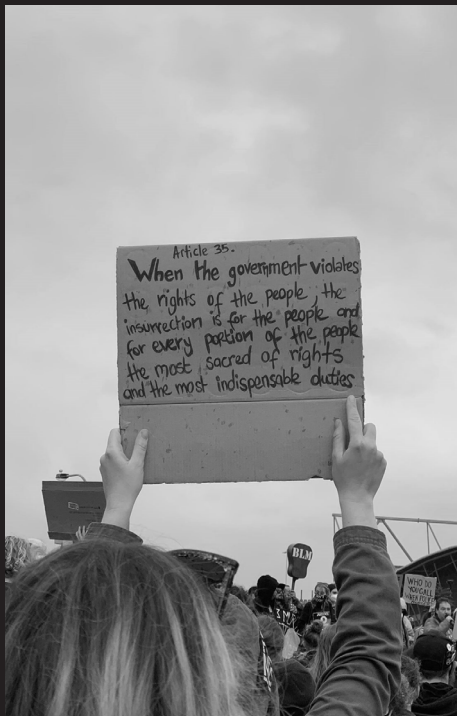 Article 35.
When the government violates
the rights of the people, the
insurrection is for the people and
for every portion of the people
the most sacred of rights
and the most indispensable duties
BLM
WHO DO
YOU CALL
WHEN POLICE